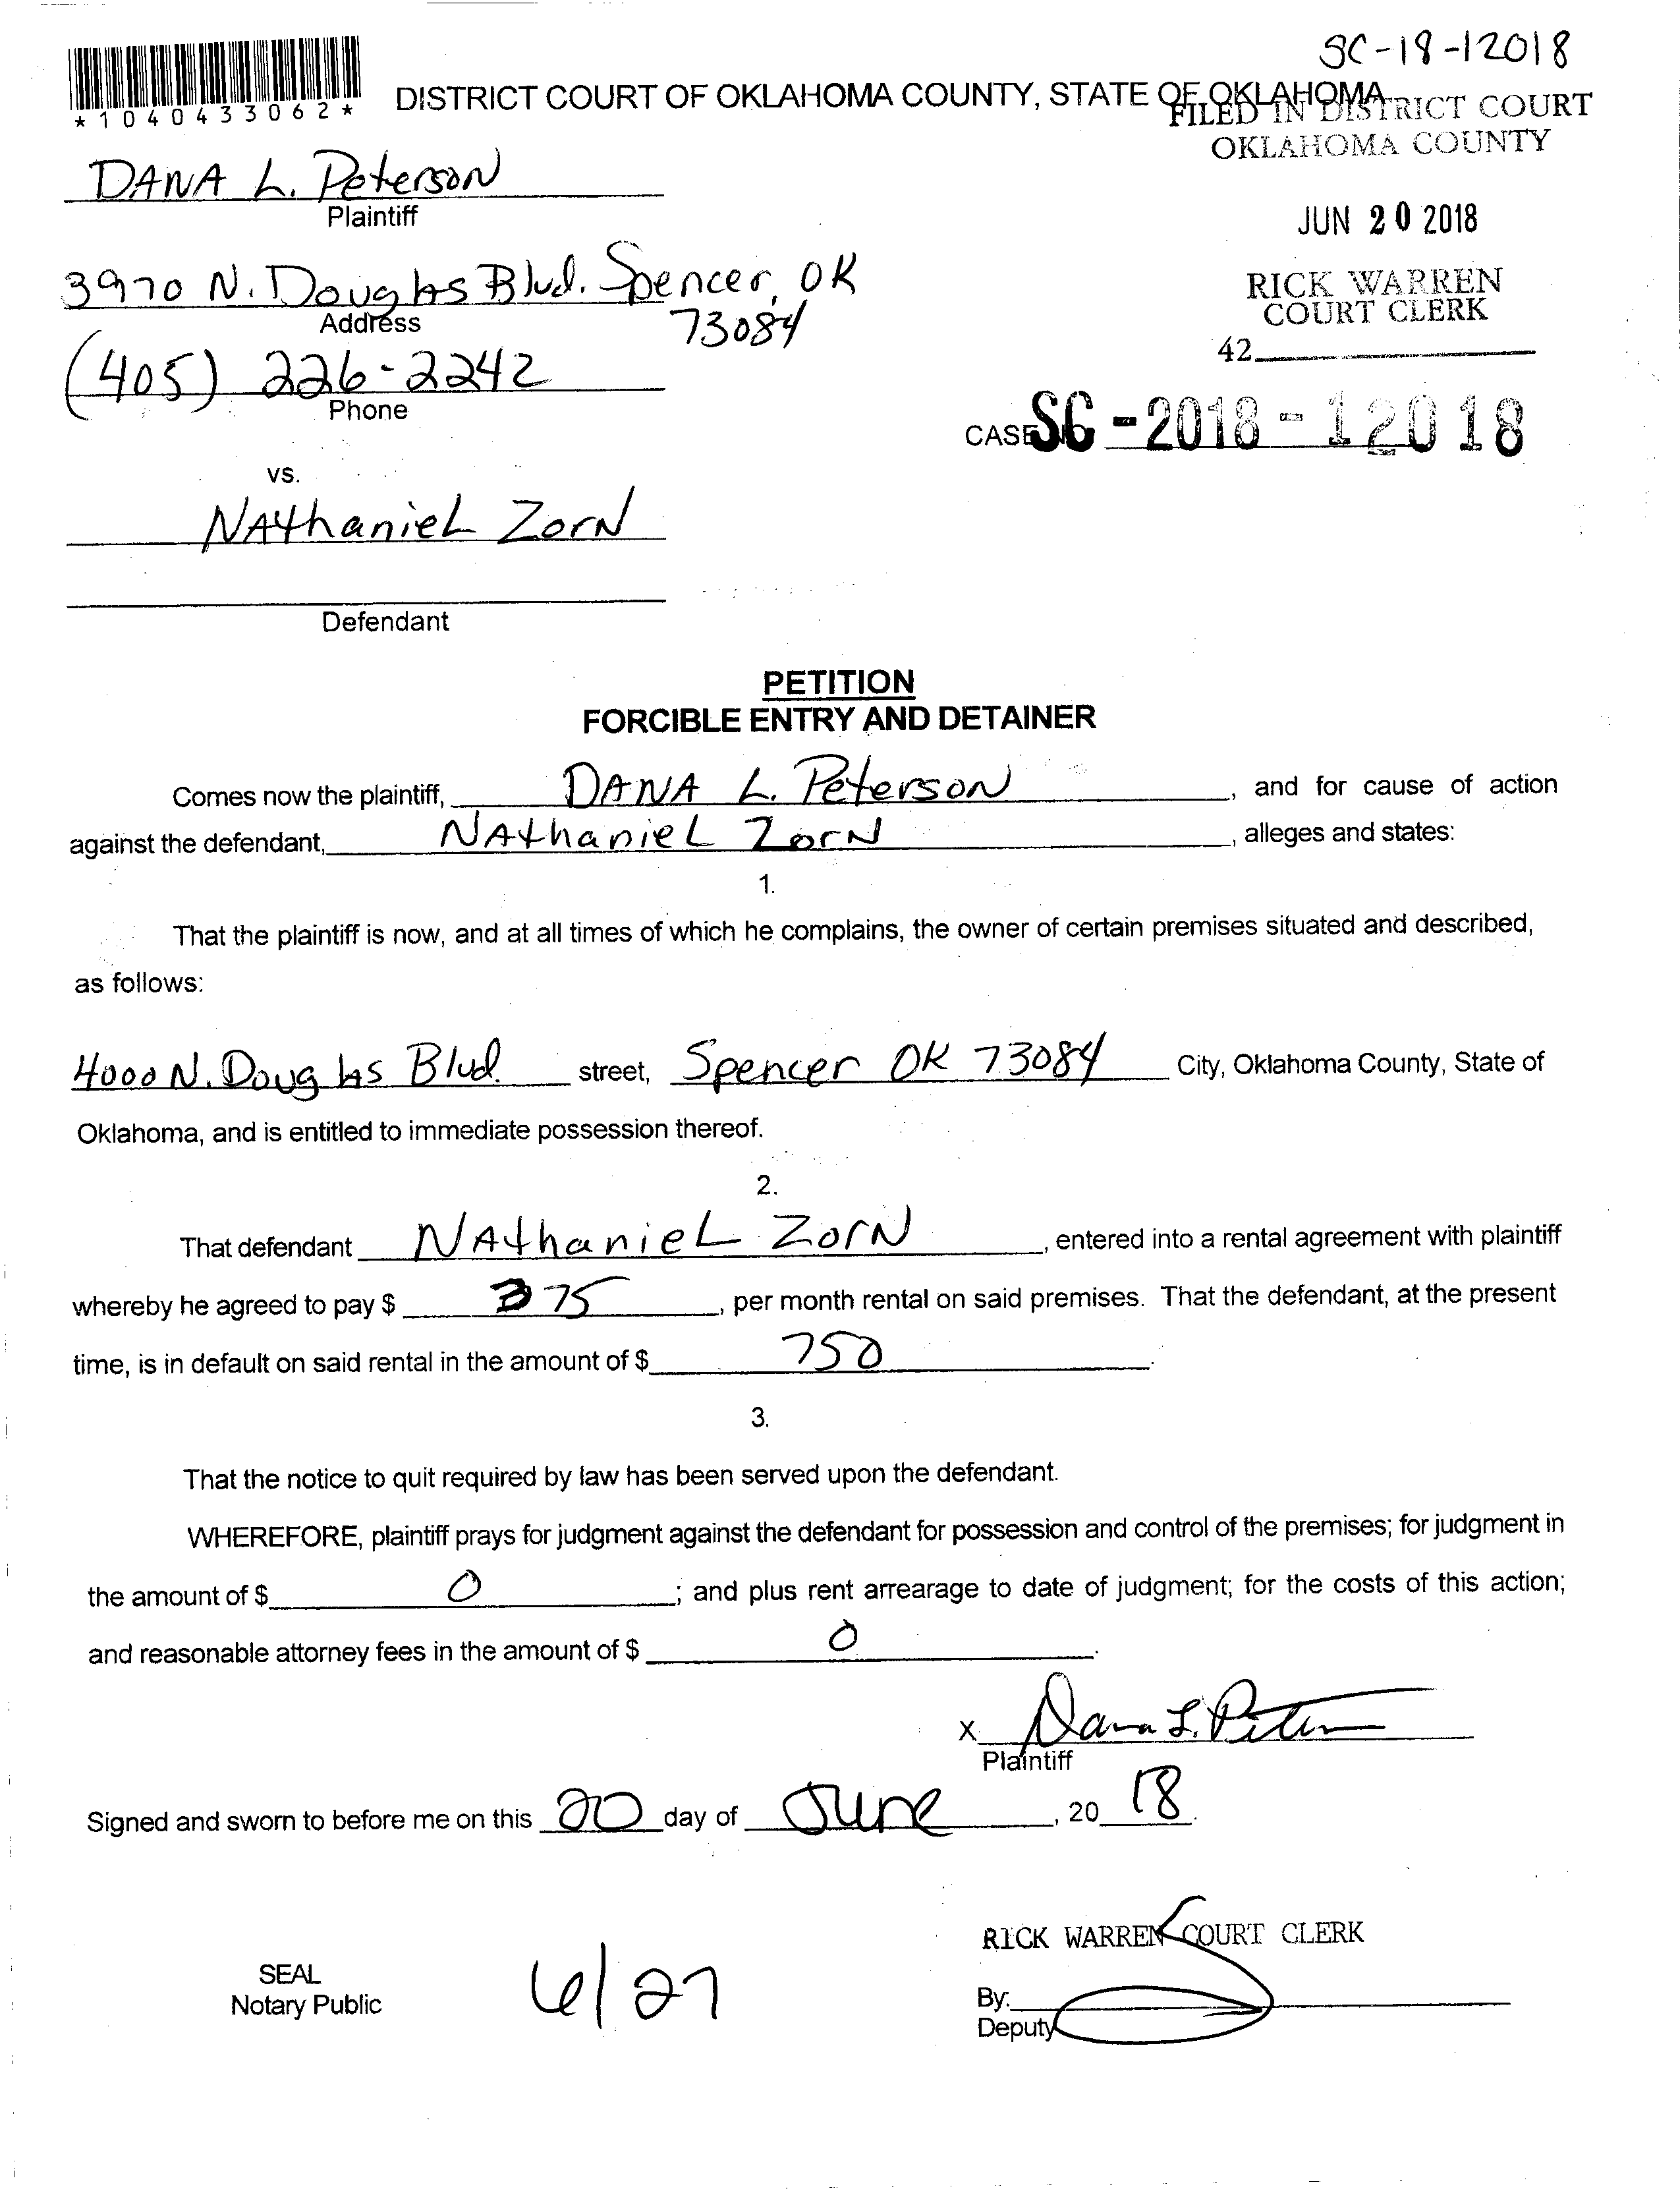 SC-18-12018
*1040433062*
DISTRICT COURT OF OKLAHOMA COUNTY, STATE OF OKLAHOMA
FILED IN DISTRICT COURT
OKLAHOMA COUNTY
DANA L. Peterson
Plaintiff
JUN 20 2018
3970 N. Douglas Blvd. Spencer, OK
73084
Address
RICK WARREN
COURT CLERK
42
(405) 226-2242
Phone
CASE NO. SC-2018-12018
vs.
NAthanieL ZorN
Defendant
PETITION
FORCIBLE ENTRY AND DETAINER
Comes now the plaintiff, DANA L. Peterson, and for cause of action
against the defendant, NAthanieL ZorN, alleges and states:
1.
That the plaintiff is now, and at all times of which he complains, the owner of certain premises situated and described,
as follows:
4000 N. Douglas Blvd. street, Spencer OK 73084 City, Oklahoma County, State of
Oklahoma, and is entitled to immediate possession thereof.
2.
That defendant NAthanieL ZorN, entered into a rental agreement with plaintiff
whereby he agreed to pay $ 375, per month rental on said premises. That the defendant, at the present
time, is in default on said rental in the amount of $ 750.
3.
That the notice to quit required by law has been served upon the defendant.
WHEREFORE, plaintiff prays for judgment against the defendant for possession and control of the premises; for judgment in
the amount of $ 0; and plus rent arrearage to date of judgment; for the costs of this action;
and reasonable attorney fees in the amount of $ 0.
X Dana L. Peterson
Plaintiff
Signed and sworn to before me on this 20 day of June, 20 18.
RICK WARREN COURT CLERK
SEAL
Notary Public
6/27
By:
Deputy